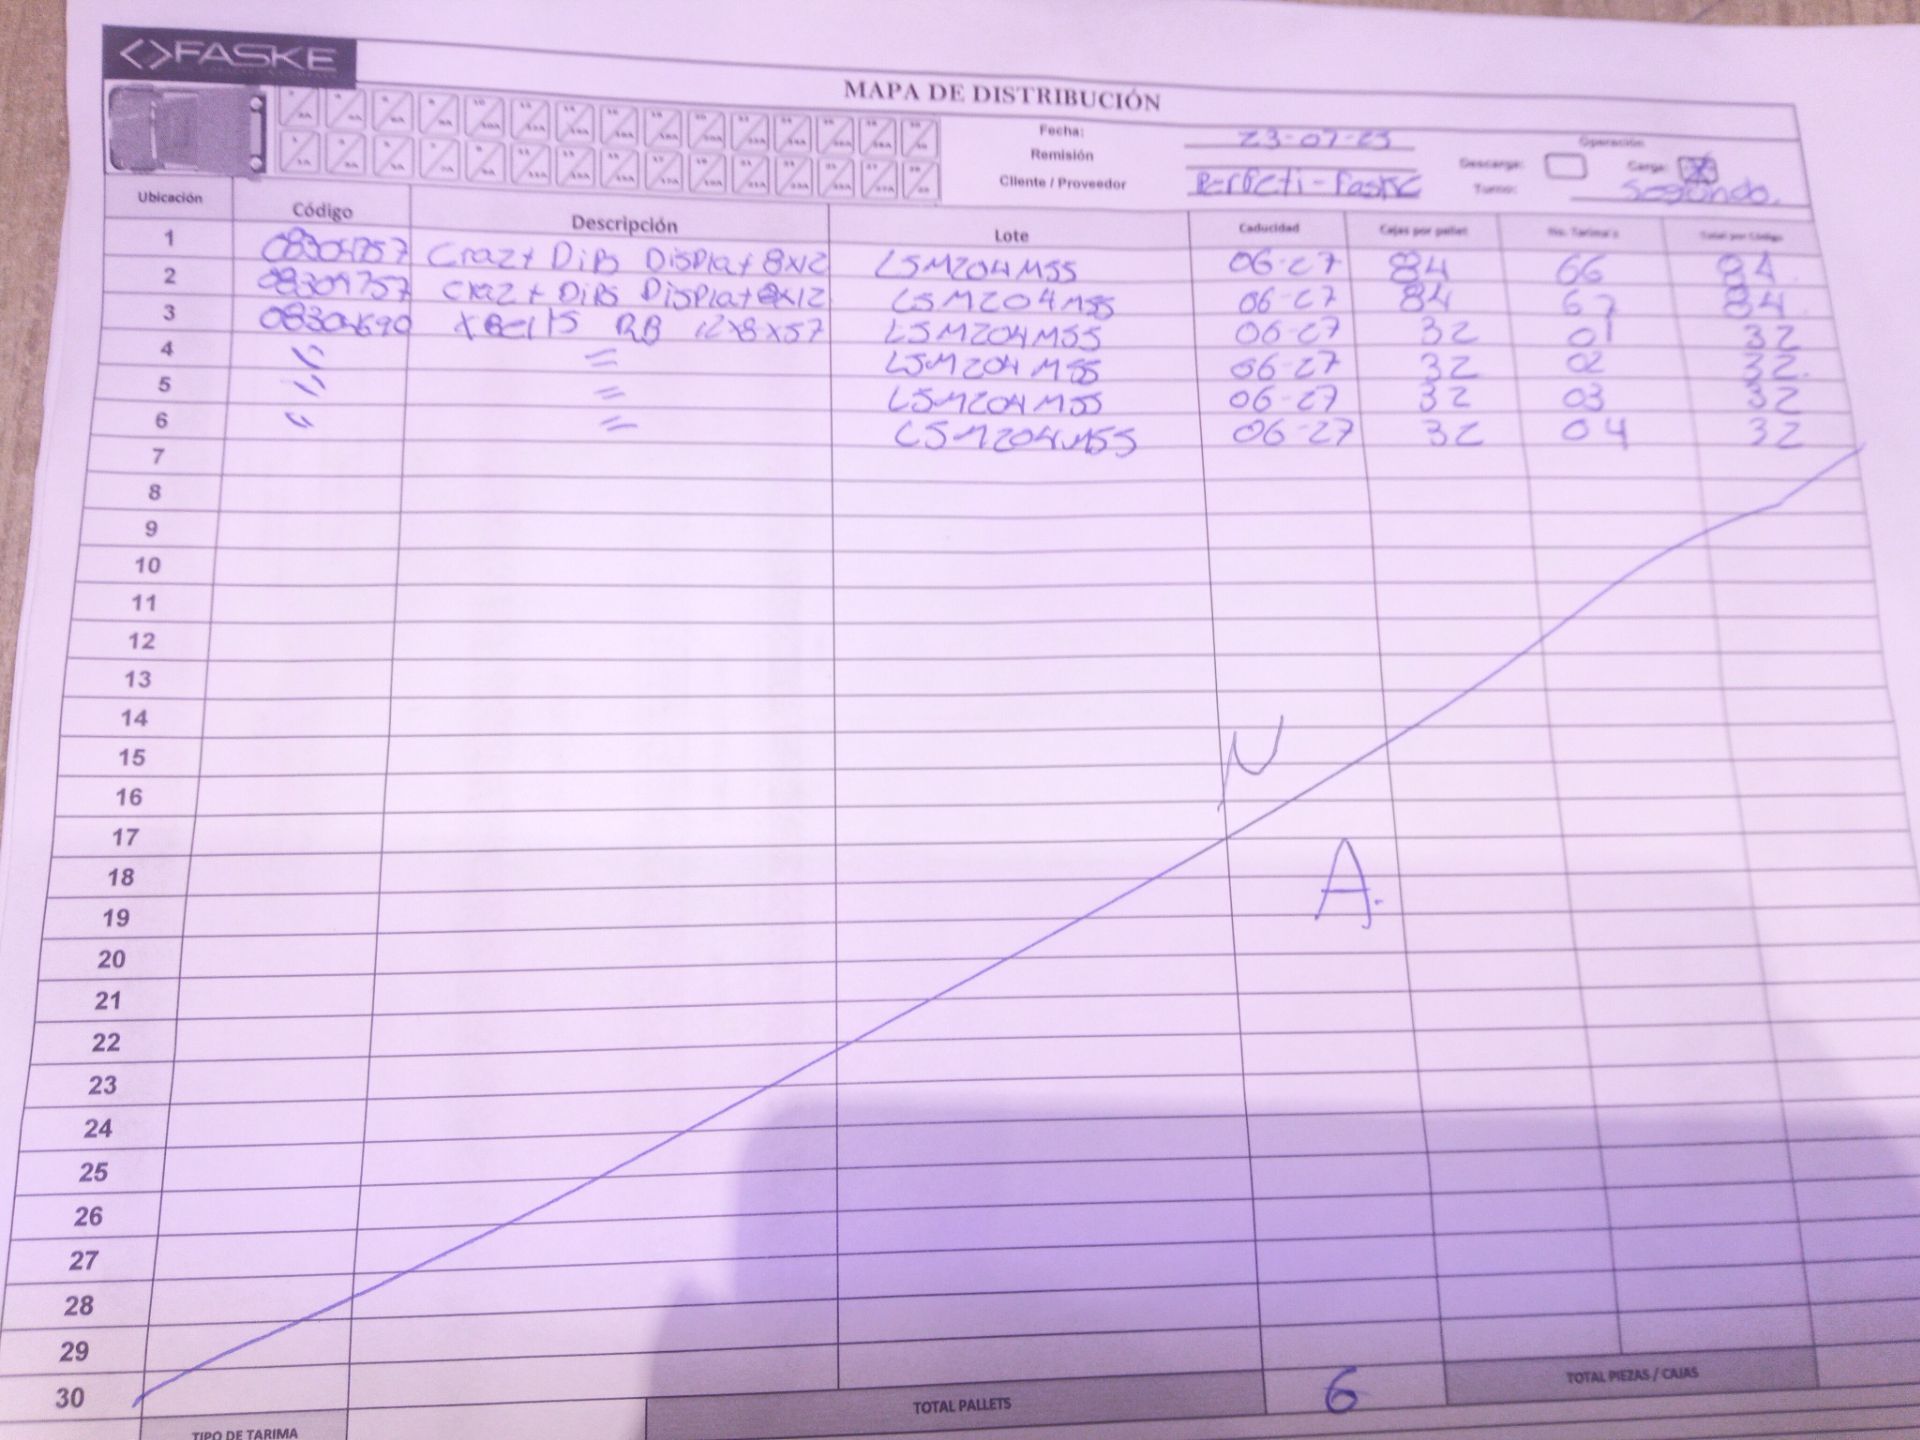 <>FASKE
MAPA DE DISTRIBUCIÓN
Fecha: 23-07-25
Operación
Remisión
Descarga: Carga: X
Cliente / Proveedor Perfeti - Faske
Turno: Segundo.
Ubicación Código Descripción Lote Caducidad Cajas por pallet No. Tarima's Total por Código
1 08304757 Crazy Dips Display 8x12 L5M204M55 06-27 84 66 84
2 08304757 Crazy Dips Display 8x12 L5M204M55 06-27 84 67 84
3 08304690 XBelts RB 12x8x57 L5M204M55 06-27 32 01 32
4 " = L5M204M55 06-27 32 02 32.
5 " = L5M204M55 06-27 32 03 32
6 " = L5M204M55 06-27 32 04 32
7
8
9
10
11
12
13
14
15 N
16
17
18 A.
19
20
21
22
23
24
25
26
27
28
29
30
TOTAL PALLETS 6 TOTAL PIEZAS / CAJAS
TIPO DE TARIMA